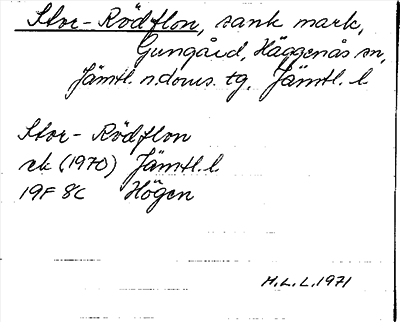 Stor-Rödflon, sank mark,
Gungård, Häggenås sn,
Jämtl. n. doms. tg, Jämtl. l
Stor-Rödflon
ek (1970) Jämtl. l.
19F 8c Högen
H.L.L. 1971